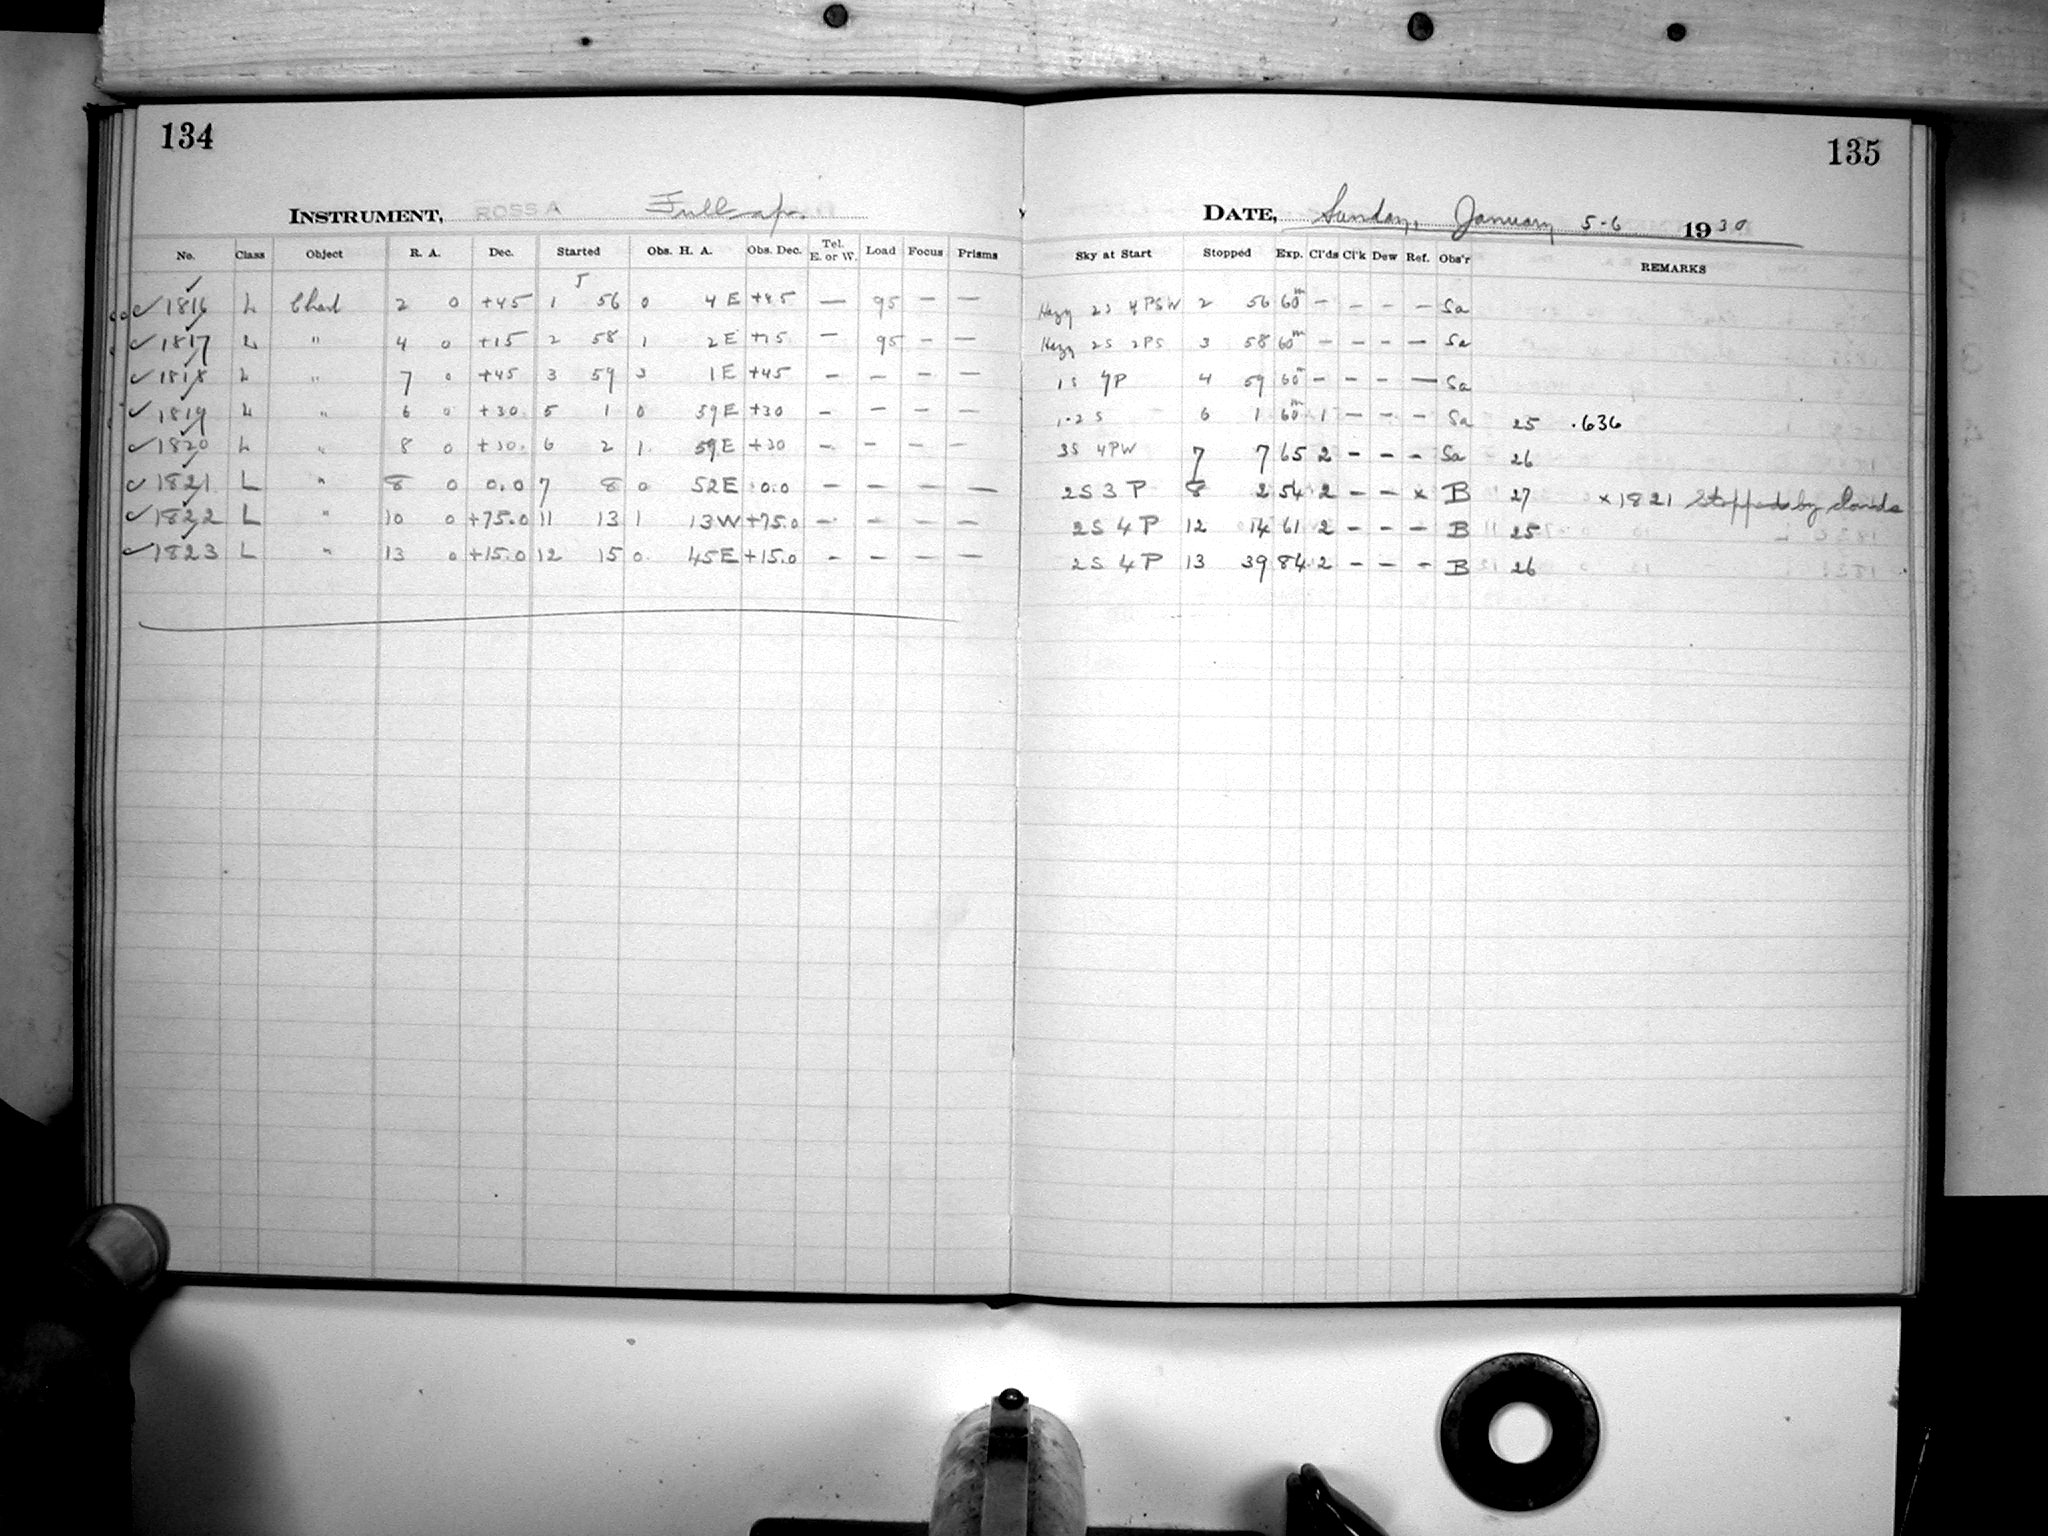 134
INSTRUMENT, ROSS A Full ap.
No. Class Object R. A. Dec. Started Obs. H. A. Obs. Dec. Tel. E. or W. Load Focus Prisms
5
✓ 1816 L Chart 2 0 +45 1 56 0 4 E +45 — 95 – —
✓ 1817 L " 4 0 +15 2 58 1 2 E +15 — 95 – —
✓ 1818 L " 7 0 +45 3 59 3 1 E +45 – – – —
✓ 1819 L " 6 0 +30. 5 1 0 59 E +30 – – – —
✓ 1820 L " 8 0 +30. 6 2 1. 59 E +30 – – – —
✓ 1821 L " 8 0 0.0 7 8 0 52 E 0.0 – – – —
✓ 1822 L " 10 0 +75.0 11 13 1 13 W +75.0 – – – —
✓ 1823 L " 13 0 +15.0 12 15 0. 45 E +15.0 – – – —
135
DATE, Sunday, January 5-6 1930
Sky at Start Stopped Exp. Cl'ds Cl'k Dew Ref. Obs'r REMARKS
Hazy 2S 4PSW 2 56 60m – – – – Sa
Hazy 2S 2PS 3 58 60m – – – – Sa
1S 4P 4 59 60m – – – — Sa
1-2 S 6 1 60m 1 – – – Sa 25 .636
3S 4PW 7 7 65 2 – – – Sa 26
2S 3 P 8 2 54 2 – – x B 27 x 1821 Stopped by clouds
2S 4 P 12 14 61 2 – – – B 25
2S 4 P 13 39 84 2 – – – B 26